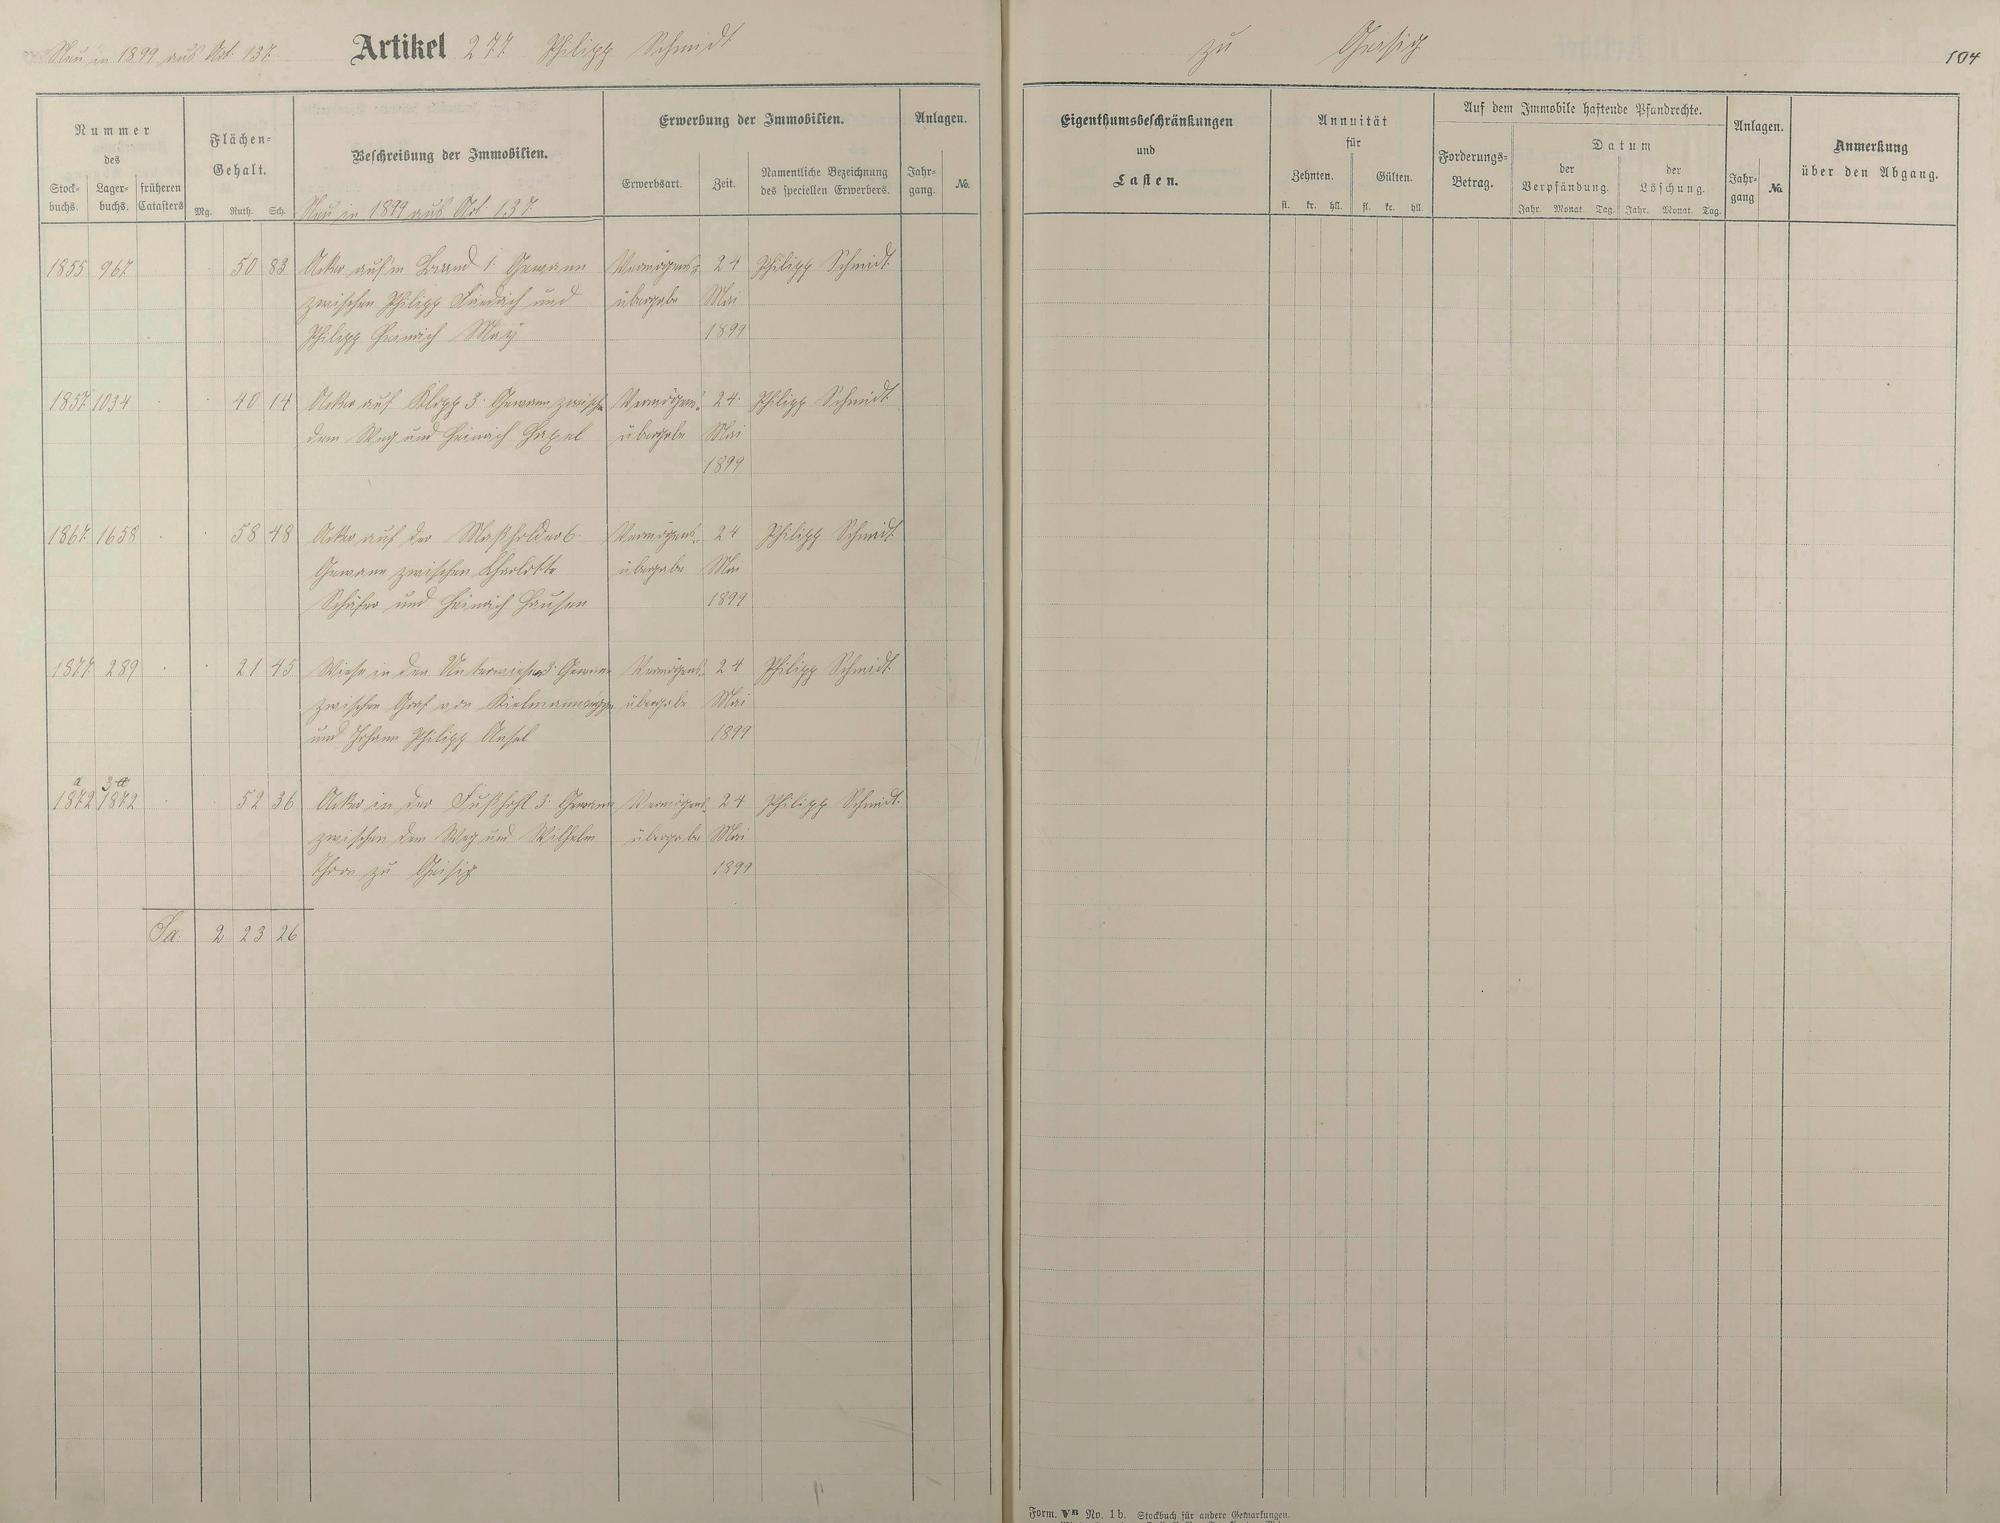 Neu in 1899 aus Art. 137.
Artikel 277 Philipp Schmidt
zu Geisig
104
Nummer
des
Stock-
buchs.
Lager-
buchs.
früheren
Catasters
Flächen-
Gehalt.
Mg. Ruth. Sch.
Beschreibung der Immobilien.
Neu in 1899 aus Art. 137.
Erwerbung der Immobilien.
Erwerbsart.
Zeit.
Namentliche Bezeichnung
des speciellen Erwerbers.
Anlagen.
Jahr-
gang.
No.
Eigenthumsbeschränkungen
und
Lasten.
Annuität
für
Zehnten. Gülten.
fl. kr. hll. fl. kr. hll.
Auf dem Immobile haftende Pfandrechte.
Forderungs-
Betrag.
Datum
der
Verpfändung.
der
Löschung.
Jahr. Monat. Tag. Jahr. Monat. Tag.
Anlagen.
Jahr-
gang
No.
Anmerkung
über den Abgang.
1855 967 50 83 Acker auf'm Brand 1. Gewann Vermögens- 24 Philipp Schmidt
zwischen Philipp und übergabe Mai
Philipp Heinrich May 1899
1857 1034 40 14 Acker auf Klipp 3. Gewann zwischen Vermögens- 24. Philipp Schmidt
dem Weg und Heinrich übergabe Mai
1899
1867 1658 58 48 Acker auf der Maßholder 6. Vermögens- 24 Philipp Schmidt
Gewann zwischen Charlotte übergabe Mai
Schäfer und Heinrich Hausen 1899
1877 289 21 45 Wiese in den Unterwiesen Gewann Vermögens- 24 Philipp Schmidt
zwischen Graf von Kielmannsegge übergabe Mai
und Johann Philipp Ansel 1899
a 3
1872 1872 52 36 Acker in der Fußhohl 3. Gewann Vermögens- 24 Philipp Schmidt.
zwischen dem Weg und Wilhelm übergabe Mai
zu Geisig 1899
Sa. 2 23 26
Form. No. 1b. Stockbuch für andere Gemarkungen.